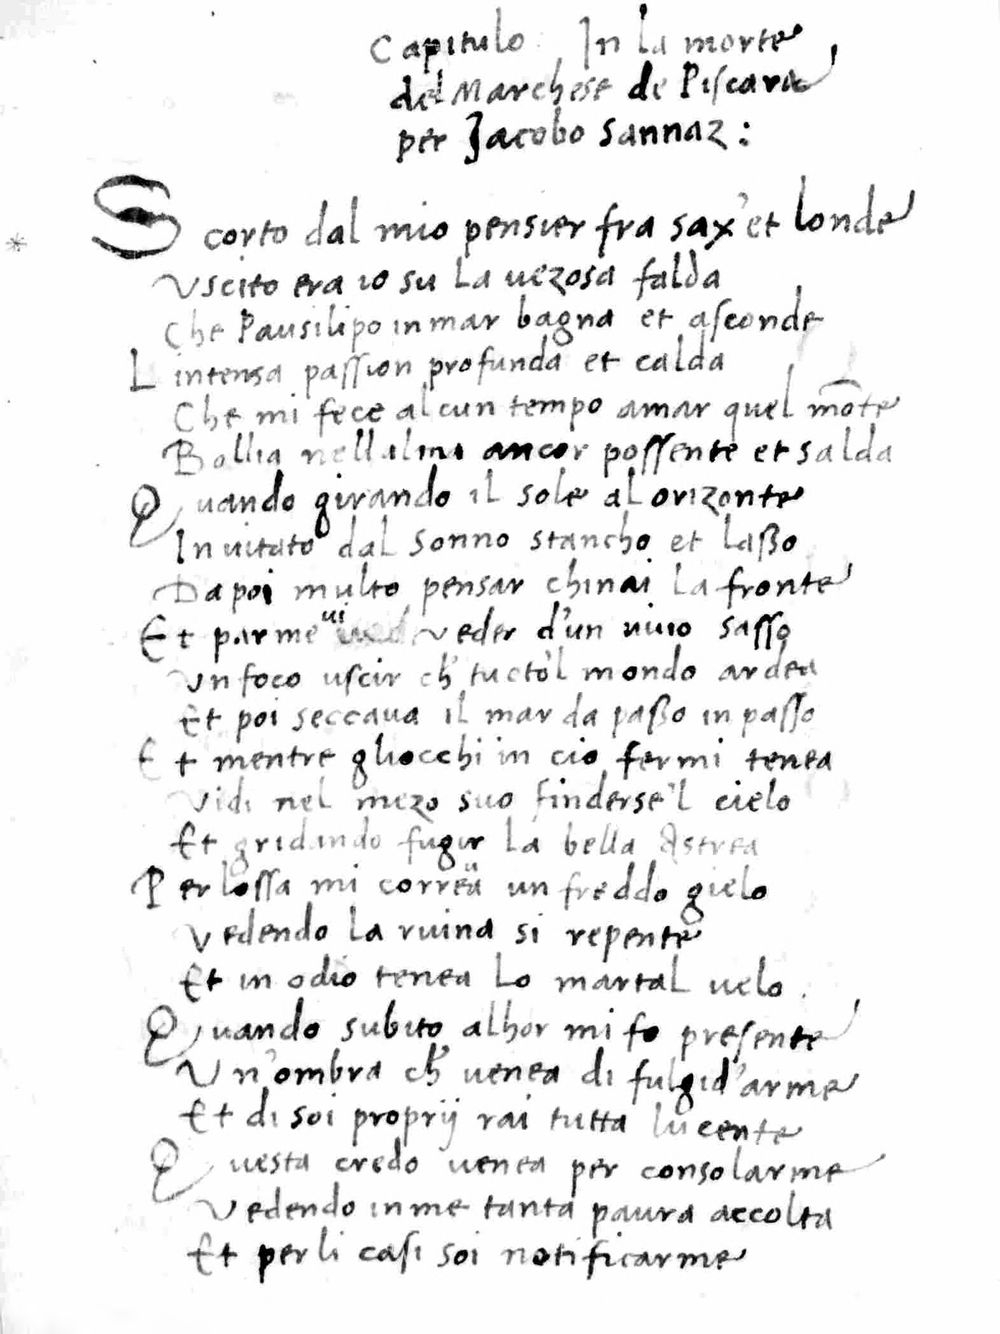 Capitulo In la morte
del Marchese de Piscara
per Jacobo Sannaz:
Scorto dal mio pensier fra sax' et londe
Uscito era io su la uezosa falda
Che Pausilipo in mar bagna et asconde
L intensa passion profunda et calda
Che mi fece alcun tempo amar quel mōte
Bollia nell alma ancor possente et salda
Quando girando il sole al orizonte
Inuitato dal sonno stancho et laßo
Da poi multo pensar chinai la fronte
Et parme ui veder d'un uiuo sasso
Un foco uscir ch' tucto'l mondo ardea
Et poi seccaua il mar da paßo in passo
Et mentre gliocchi in cio fermi tenea
Vidi nel mezo suo finderse'l cielo
Et gridando fugir la bella Astrea
Per lossa mi correua un freddo gielo
Vedendo la ruina si repente
Et in odio tenea lo martal uelo.
Quando subito alhor mi fo presente
Un'ombra ch' uenea di fulgid'arme
Et di soi proprij rai tutta lucente
Questa credo uenea per consolarme
Vedendo in me tanta paura accolta
Et per li casi soi notificarme